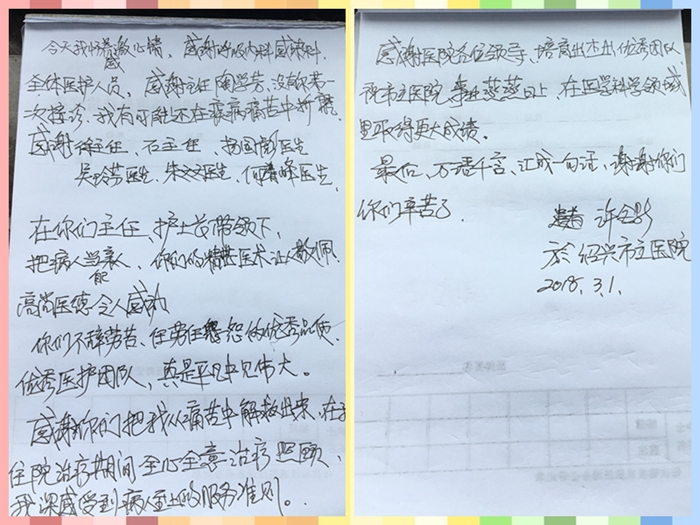 今天我怀着激心情，感谢呼吸内科感染科
感
全体医护人员，感谢主任陶学芳，没有你第一
次接诊，我有可能还在疾病痛苦中折磨。
感谢徐主任、石主任、杨国南医生
吴玲芳医生、朱文医生、何青峰医生，
在你们主任、护士长带领下，
把病人当亲人、你们的精湛医术让人敬佩，
能
高尚医德令人感动
你们不辞劳苦、任劳任怨的优秀品质
优秀医护团队，真是平凡中见伟大。
感谢你们把我从痛苦中解救出来，在我
住院治疗期间全心全意治疗照顾，
我深感受到病人至上的服务准则。
感谢医院各位领导、培育出杰出优秀团队
祝市立医院事业蒸蒸日上，在医学科学领域
里取得更大成绩。
最后，万语千言、汇成一句话，谢谢你们
你们辛苦了
患者 许
于绍兴市立医院
2018.3.1.